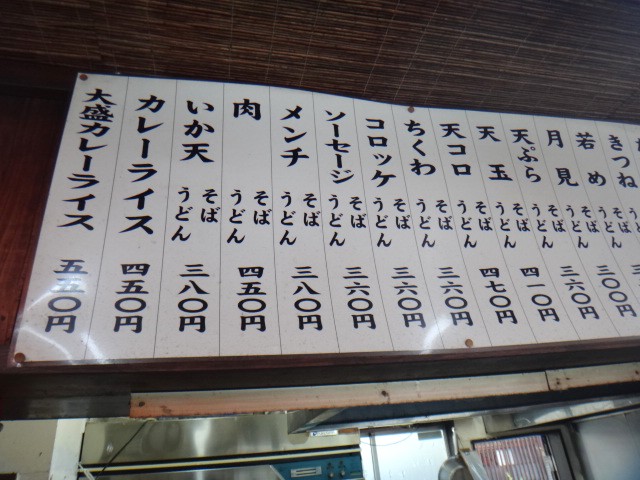 きつね
そば
うどん
若め
そば
うどん
月見
そば
うどん
三〇〇円
天ぷら
そば
うどん
三六〇円
天玉
そば
うどん
四一〇円
天コロ
そば
うどん
四七〇円
ちくわ
そば
うどん
三六〇円
コロッケ
そば
うどん
三六〇円
ソーセージ
そば
うどん
三六〇円
メンチ
そば
うどん
三八〇円
肉
そば
うどん
四五〇円
いか天
そば
うどん
三八〇円
カレーライス
四五〇円
大盛カレーライス
五五〇円